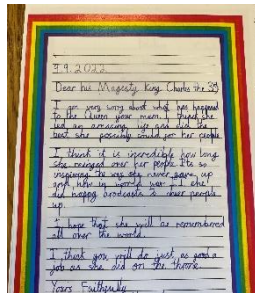 9.9.2022
Dear his Magesty King Charles the 3rd
I am very sorry about what has happened
to the Queen your mum. I think she
led an amazing life and did the
best she possibly could for her people.
I think it is incredible how long
she reinged over her people. Its so
inspiring the way she never gave up
and how in world war II she
did happy brodcasts to cheer people
up.
I hope that she will be remembered
all over the world.
I think you'll do just as good a
job as she did on the throne.
Yours Faithfully